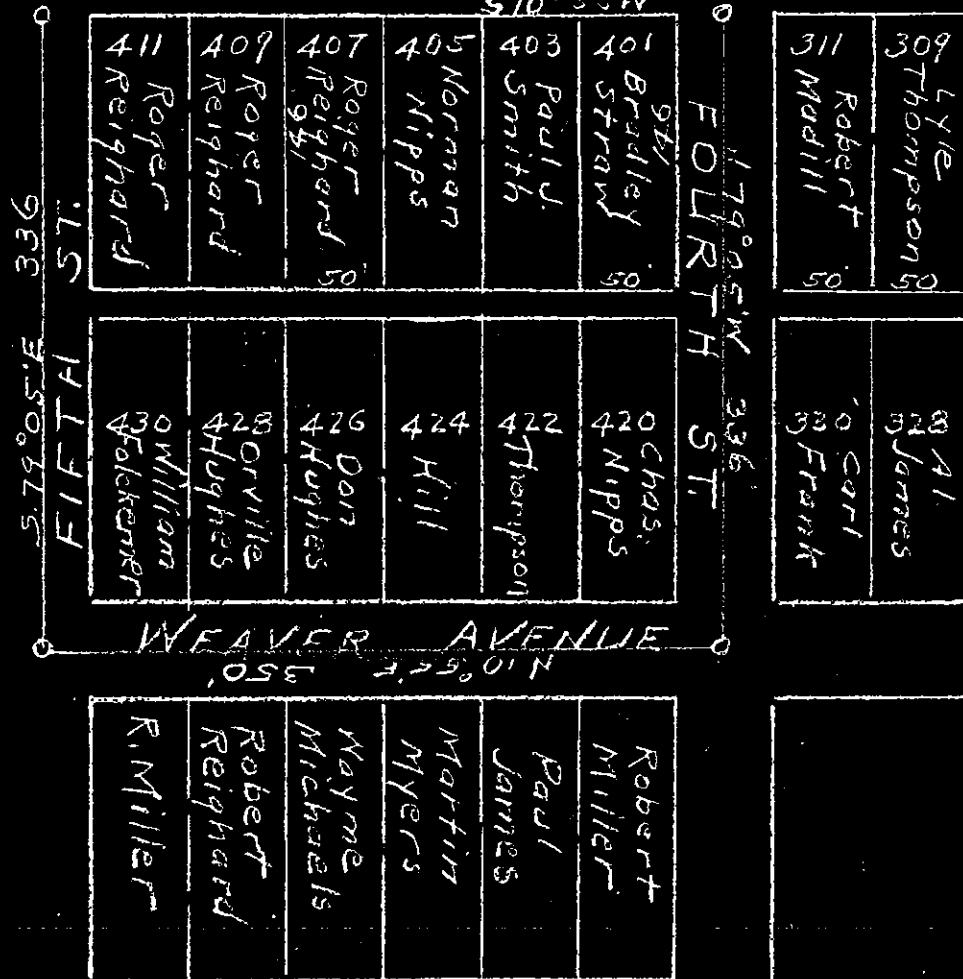 411
Roger
Reighard
409
Roger
Reighard
407
Roger
Reighard
50
405
Norman
Nipps
403
Paul J.
Smith
401
Bradley
Straw
50
311
Robert
Madill
50
309
Lyle
Thompson
50
FIFTH ST.
S.79°05'E 336
FOURTH ST.
N79°05'W 336
430
William
Folckemer
428
Orville
Hughes
426
Don
Hughes
424
Hill
422
Thompson
420
Chas.
Nipps
330
Carl
Frank
328
Al.
James
WEAVER AVENUE
350'
R. Miller
Robert
Reighard
Wayne
Michaels
Martin
Myers
Paul
James
Robert
Miller